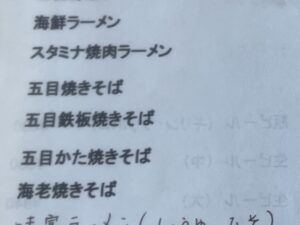 海鮮ラーメン
スタミナ焼肉ラーメン
五目焼きそば
五目鉄板焼きそば
五目かた焼きそば
海老焼きそば
ラーメン(しょうゆ、みそ)